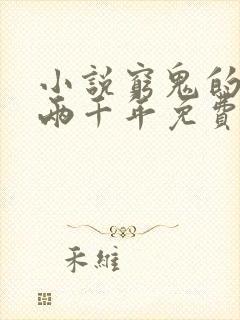 小說窮鬼的
兩千年免費
禾維